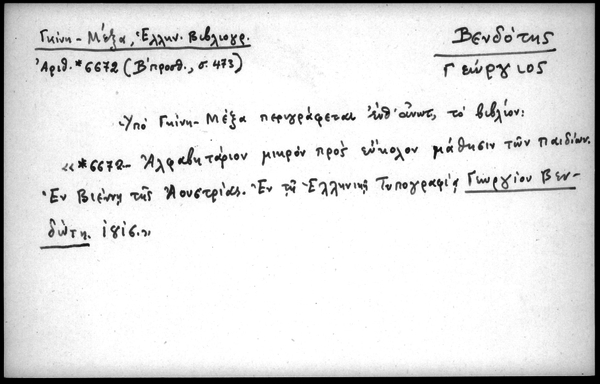 Γκίνη - Μέξα, Ἑλλην. Βιβλιογρ.
Βενδότης
Ἀριθ. *6672 (Β' προσθ., σ. 473)
Γεώργιος
Ὑπό Γκίνη - Μέξα περιγράφεται
τό βιβλίον:
«*6672 - Ἀλφαβητάριον μικρόν πρός εὔκολον μάθησιν τῶν παιδίων.
Ἐν Βιέννῃ τῆς Ἀουστρίας. Ἐν τῇ Ἑλληνικῇ Τυπογραφίᾳ Γεωργίου Βεν-
δώτη.